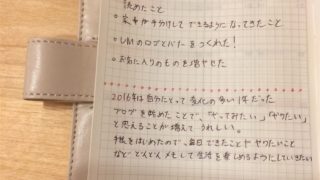 読めたこと
○ 家事が手分けしてできるようになってきたこと
○ LINEのロゴとバナーをつくれた!
○ お気に入りのものを増やせた
2016年は自分にとって変化の多い1年だった
ブログを始めたことで、「やってみたい」「やりたい」
と思えることが増えてうれしい。
手帳をはじめたので、毎日できたことややりたいこと
などどんどんメモして生活を楽しめるようにしていきたい